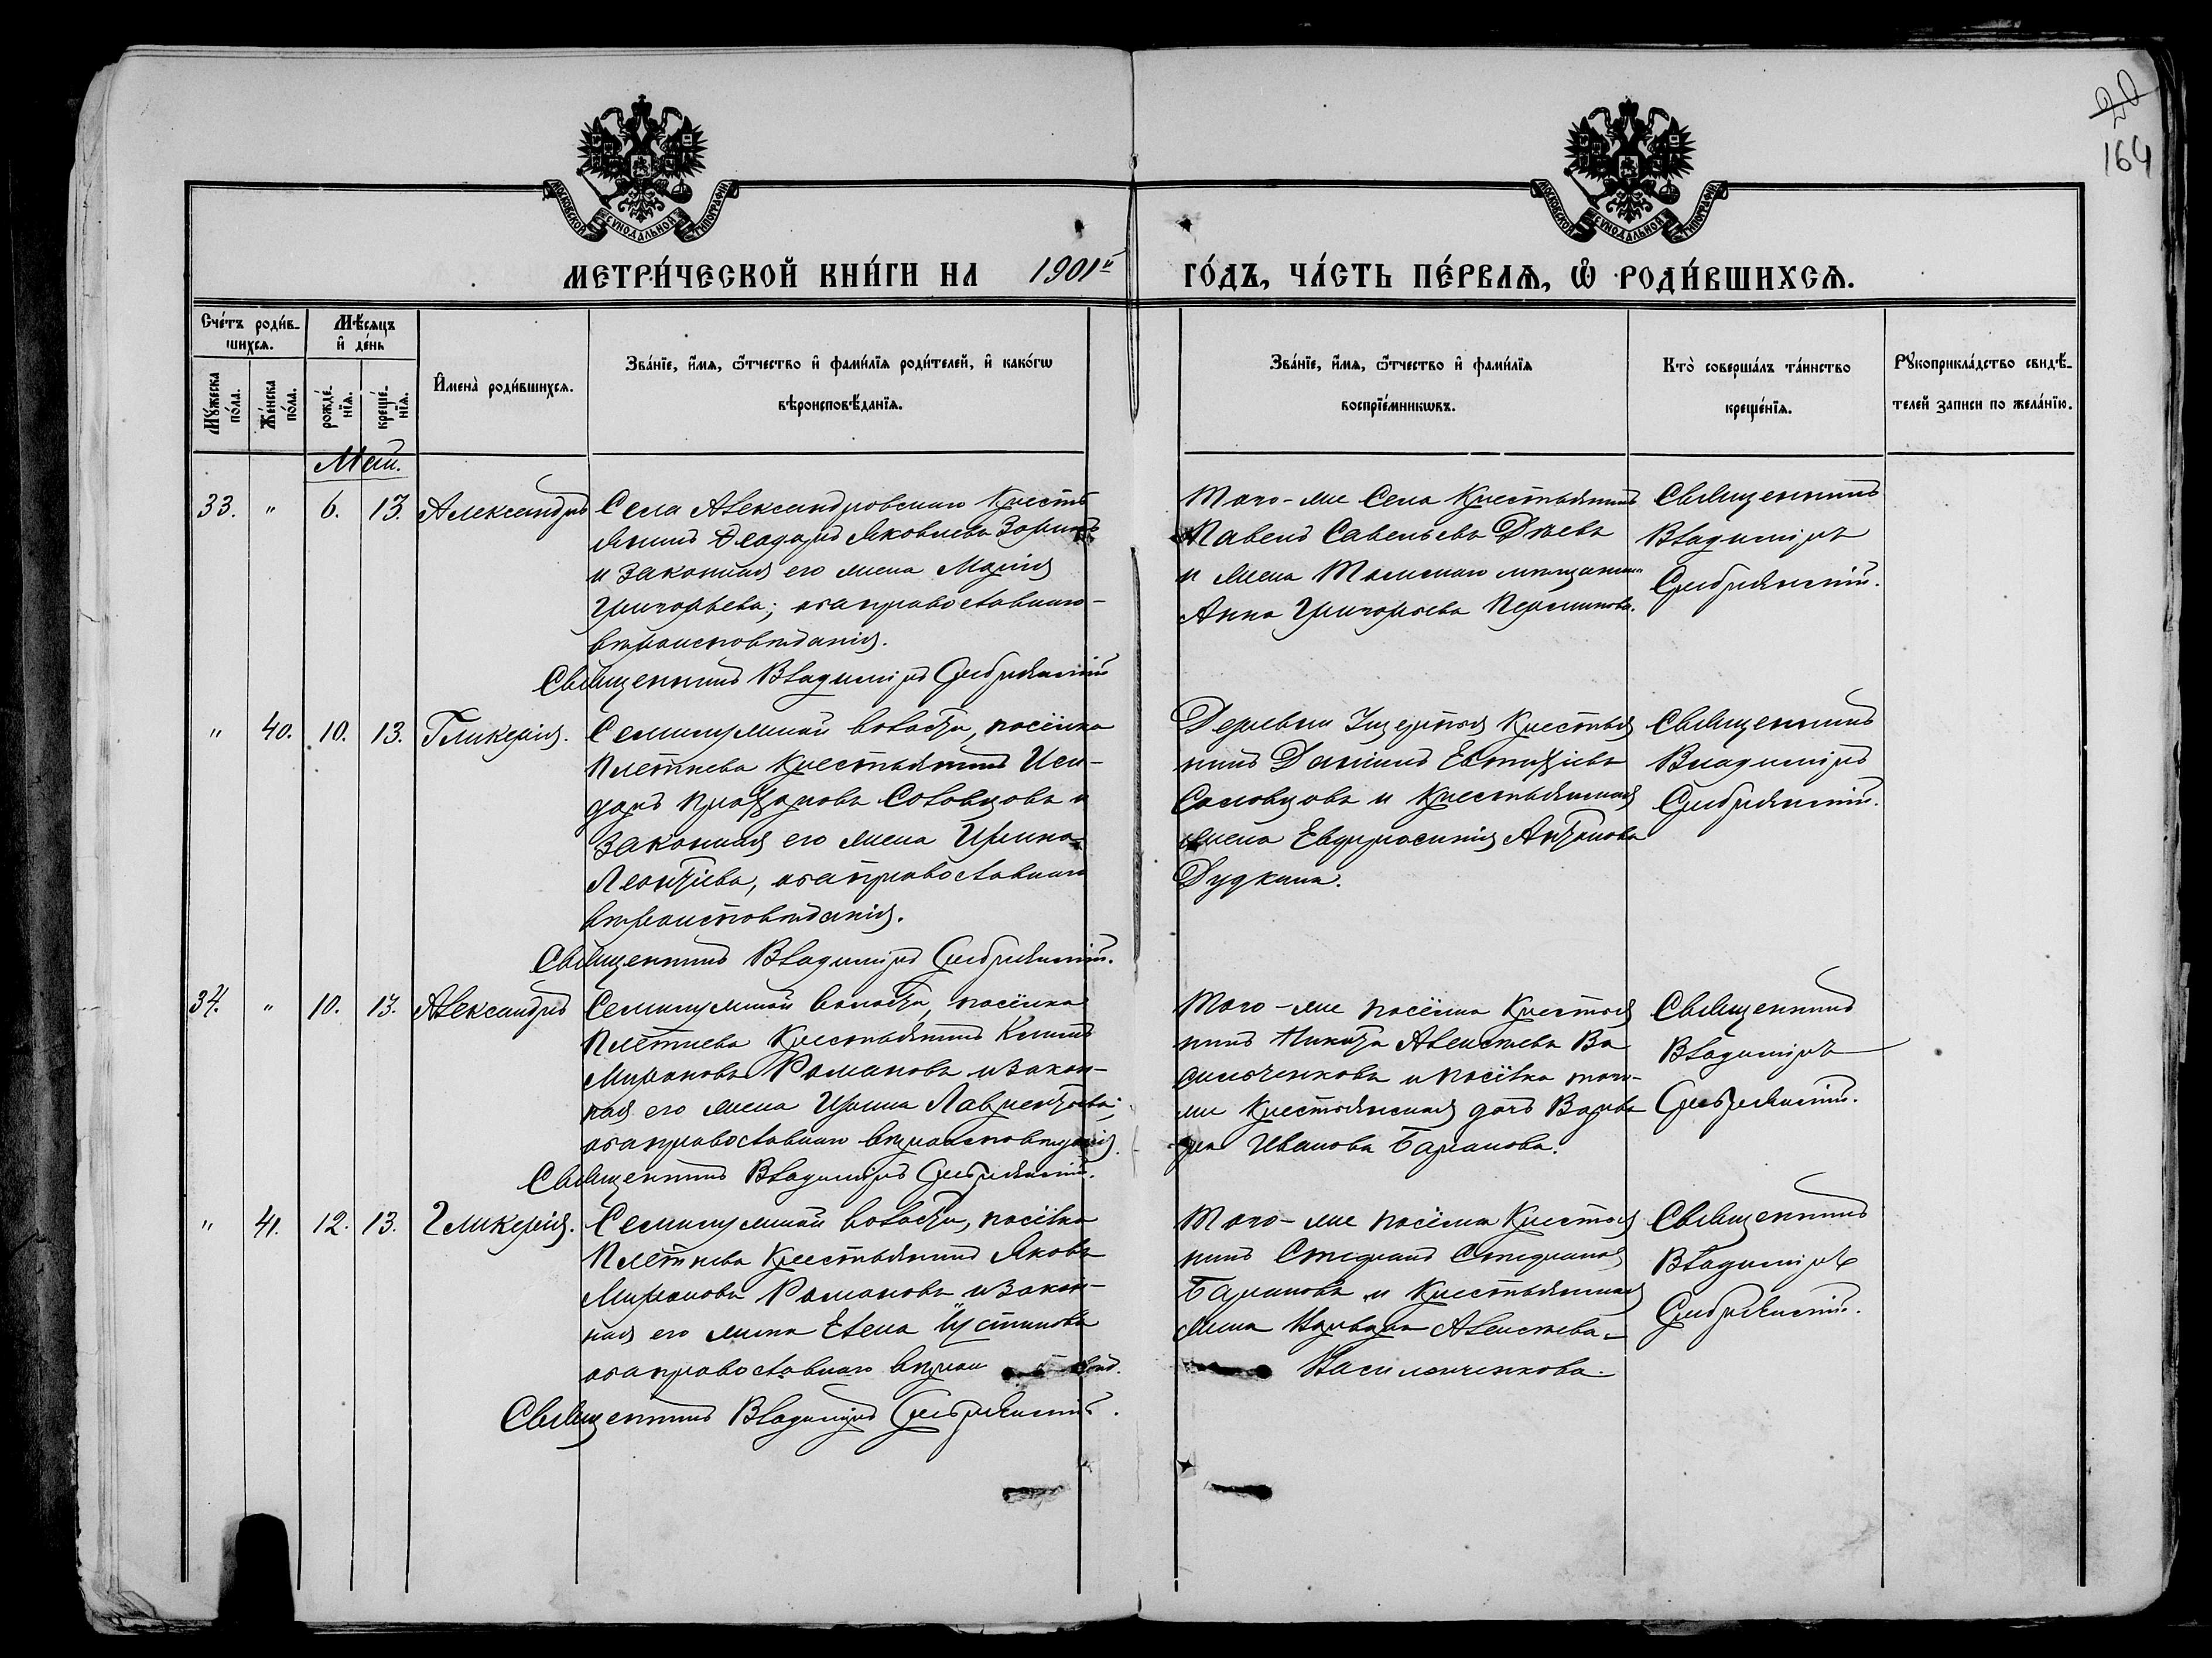 20
164
МОСКОВСКОЙ СѴНОДАЛЬНОЙ ТИПОГРАФІИ
МОСКОВСКОЙ СѴНОДАЛЬНОЙ ТИПОГРАФІИ
МЕТРИ́ЧЕСКОЙ КНИ́ГИ НА 1901й ГО́ДЪ, ЧА́СТЬ ПЕ́РВАѦ, Ѡ҆ РОДИ́ВШИХСѦ.
Сче́тъ роди́в-
шихсѧ.
Мѣ́сѧцъ
и҆ де́нь
Мꙋ́жеска
по́ла.
Же́нска
по́ла.
рожде́-
нїѧ.
креще́-
нїѧ.
И҆мена̀ роди́вшихсѧ.
Зва́нїе, и҆́мѧ, ѻ҆́тчество и҆ фами́лїѧ роди́телей, и҆ како́гѡ
вѣроисповѣ́данїѧ.
Зва́нїе, и҆́мѧ, ѻ҆́тчество и҆ фами́лїѧ
воспрїе́мникѡвъ.
Кто̀ соверша́лъ та́инство
креще́нїѧ.
Рꙋкоприкла́дство свидѣ́-
телей записи по жела́нїю.
Май.
33. " 6. 13. Александръ
Села Александровскаго Кресть
янинъ Ѳеодоръ Яковлевъ
и законная его жена Марія
Григорьева; оба православнаго
вѣроисповѣданія.
Священникъ Владиміръ Серебрянскій
Того-же Села Крестьянинъ
Павелъ Савельевъ
и жена Томскаго мѣщанина
Анна Григорьева
Священникъ
Владиміръ
Серебрянскій.
" 40. 10. 13. Гликерія.
Семилужной волости, посёлка
Плетнева Крестьянинъ Иси-
доръ Соловцовъ и
законная его жена Ирина
Леонтіева, оба православнаго
вѣроисповѣданія.
Священникъ Владиміръ Серебрянскій.
Деревни Крестья
нинъ Даніилъ Евтихіевъ
Соловцовъ и Крестьянская
жена Евфросинія Антонова
Дудкина.
Священникъ
Владиміръ
Серебрянскій.
34. " 10. 13. Александръ
Семилужной волости, посёлка
Плетнева Крестьянинъ Климъ
Мироновъ Романовъ и закон-
ная его жена Ирина Лаврентьева;
оба православнаго вѣроисповѣданія.
Священникъ Владиміръ Серебрянскій.
Того-же посёлка Крестья
нинъ Никита Алексѣевъ Ва
сильченковъ и посёлка того-
же Крестьянская дочь Варва
ра Иванова Баранова.
Священникъ
Владиміръ
Серебрянскій.
" 41. 12. 13. Гликерія.
Семилужной волости, посёлка
Плетнева Крестьянинъ Яковъ
Мироновъ Романовъ и закон-
ная его жена Елена Іустинова
оба православнаго
Священникъ Владиміръ Серебрянскій.
Того-же посёлка Крестья
нинъ Стефанъ Стефановъ
Барановъ и Крестьянская
жена Варвара Алексѣева
Васильченкова.
Священникъ
Владиміръ
Серебрянскій.